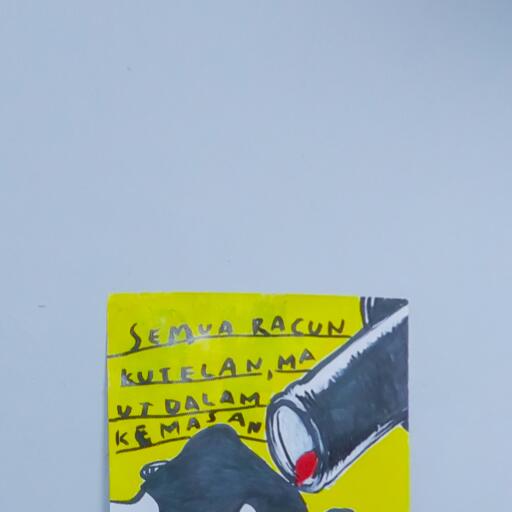 SEMUA RACUN
KUTELAN, MA
UT DALAM
KEMASAN